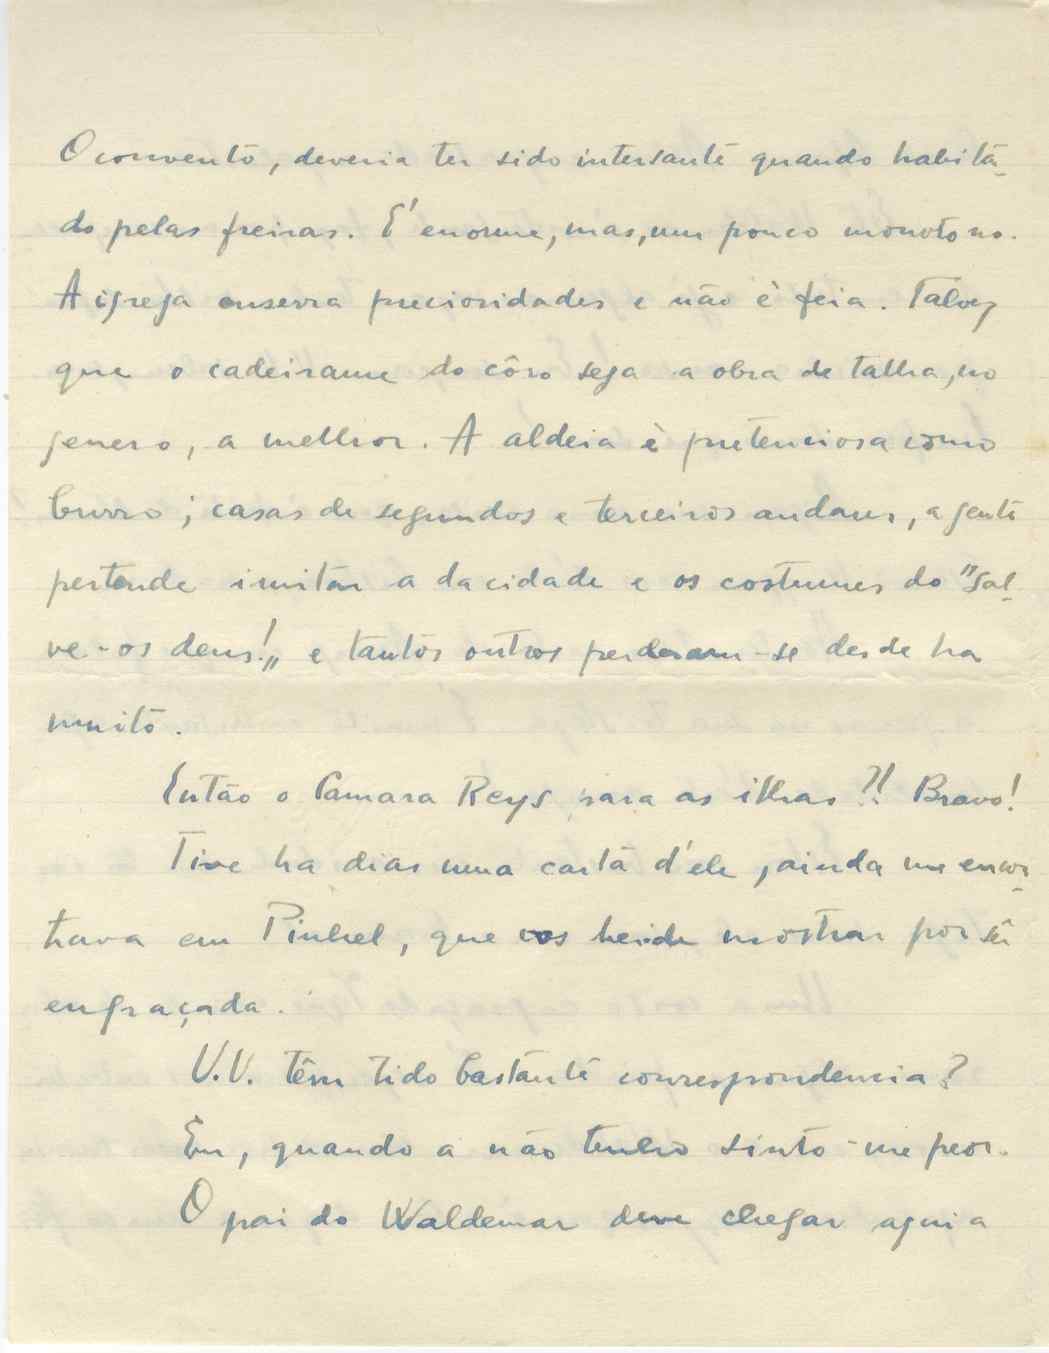 O convento, deveria ter sido intersante quando habita-
do pelas freiras. E' enorme, mas, um pouco monotono.
A igreja enserra preciosidades e não è feia. Talvez
que o cadeirame do côro seja a obra de talha, no
genero, a melhor. A aldeia è pretenciosa como
burro; casas de segundos e terceiros andares, a gente
pertende imitar a da cidade e os costumes do "Sal-
ve-os deus!" e tantos outros perderam-se desde ha
muito.
Então o Camara Reys para as ilhas?!! Bravo!
Tive ha dias uma carta d'ele, ainda me encon-
trava em Pinhel, que vos heide mostrar por sêr
engraçada.
V.V. têm tido bastante correspondencia?
Eu, quando a não tenho sinto-me peor.
O pai do Waldemar deve chegar aqui a